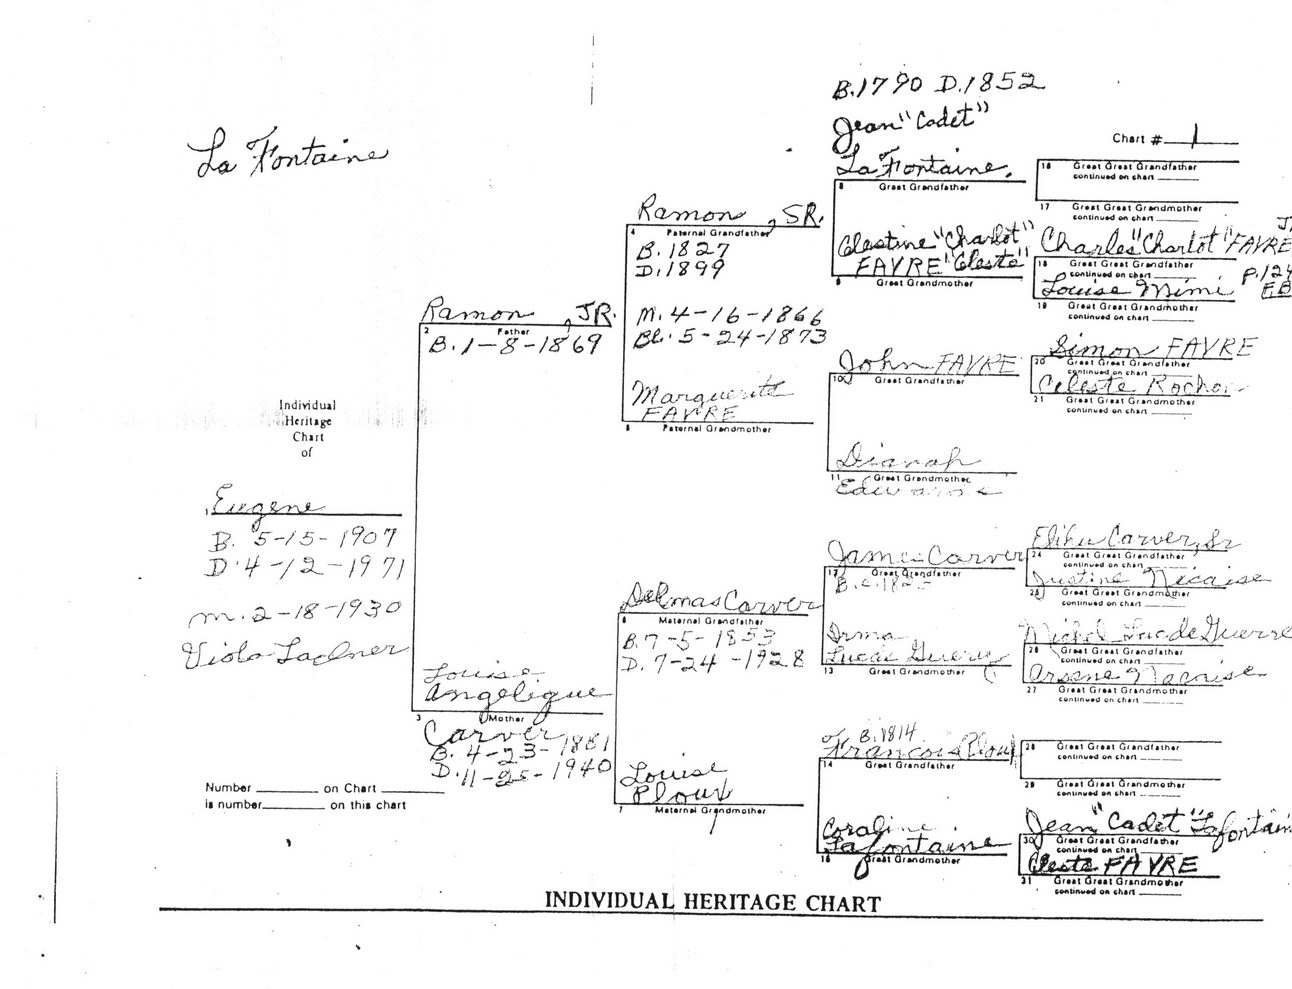 La Fontaine
Individual
Heritage
Chart
of
Eugene
B. 5-15-1907
D. 4-12-1971
m. 2-18-1930
Viola Ladner
Number ________ on Chart ________
is number ________ on this chart
Ramon, JR.
2 Father
B. 1-8-1869
Louise
Angelique
3 Mother
Carver
B. 4-23-1881
D. 11-25-1940
Ramon, SR.
4 Paternal Grandfather
B. 1827
D. 1899
M. 4-16-1866
Bl. 5-24-1873
Marguerite
FAVRE
5 Paternal Grandmother
Delmas Carver
6 Maternal Grandfather
B. 7-5-1853
D. 7-24-1928
Louise
Ploux
7 Maternal Grandmother
B. 1790 D. 1852
Jean "Cadet"
La Fontaine.
8 Great Grandfather
Celestine "Charlot"
FAVRE "Celeste"
9 Great Grandmother
John FAVRE
10 Great Grandfather
Dianah
11 Great Grandmother
James Carver
12 Great Grandfather
B. c. 1825
Irma
13 Great Grandmother
B. 1814
Francois Ploux
14 Great Grandfather
Coraline
Lafontaine
15 Great Grandmother
Chart # 1
16 Great Great Grandfather
continued on chart ________
17 Great Great Grandmother
continued on chart ________
Charles "Charlot" FAVRE
18 Great Great Grandfather
continued on chart
P. 124
Louise Mimi
19 Great Great Grandmother
continued on chart ________
Simon FAVRE
20 Great Great Grandfather
continued on chart
Celeste Rochon
21 Great Great Grandmother
continued on chart ________
Elihu Carver, Sr
24 Great Great Grandfather
continued on chart
Justine Nicaise
25 Great Great Grandmother
continued on chart ________
Michel Luc de Guerre
26 Great Great Grandfather
continued on chart
Arsene Nacaise
27 Great Great Grandmother
continued on chart ________
28 Great Great Grandfather
continued on chart ________
29 Great Great Grandmother
continued on chart ________
Jean "Cadet" Lafontain
30 Great Great Grandfather
continued on chart
Celeste FAVRE
31 Great Great Grandmother
continued on chart ________
INDIVIDUAL HERITAGE CHART